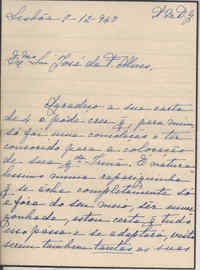 Lisbôa 8-12-963
Exmo Snr. José da P. Alves,
Agradeço a sua carta
de 4 e pode crer q. para mim
só foi uma consolação ter
concorrido para a colocação
de sua qda Irmã. É natura-
lissimo numa rapariguinha
q. se acha completamente só
e fora do seu meio, ser acan-
hada, estou certa q. tudo
isso passa e se adaptará, visto
serem tambem tantas as suas